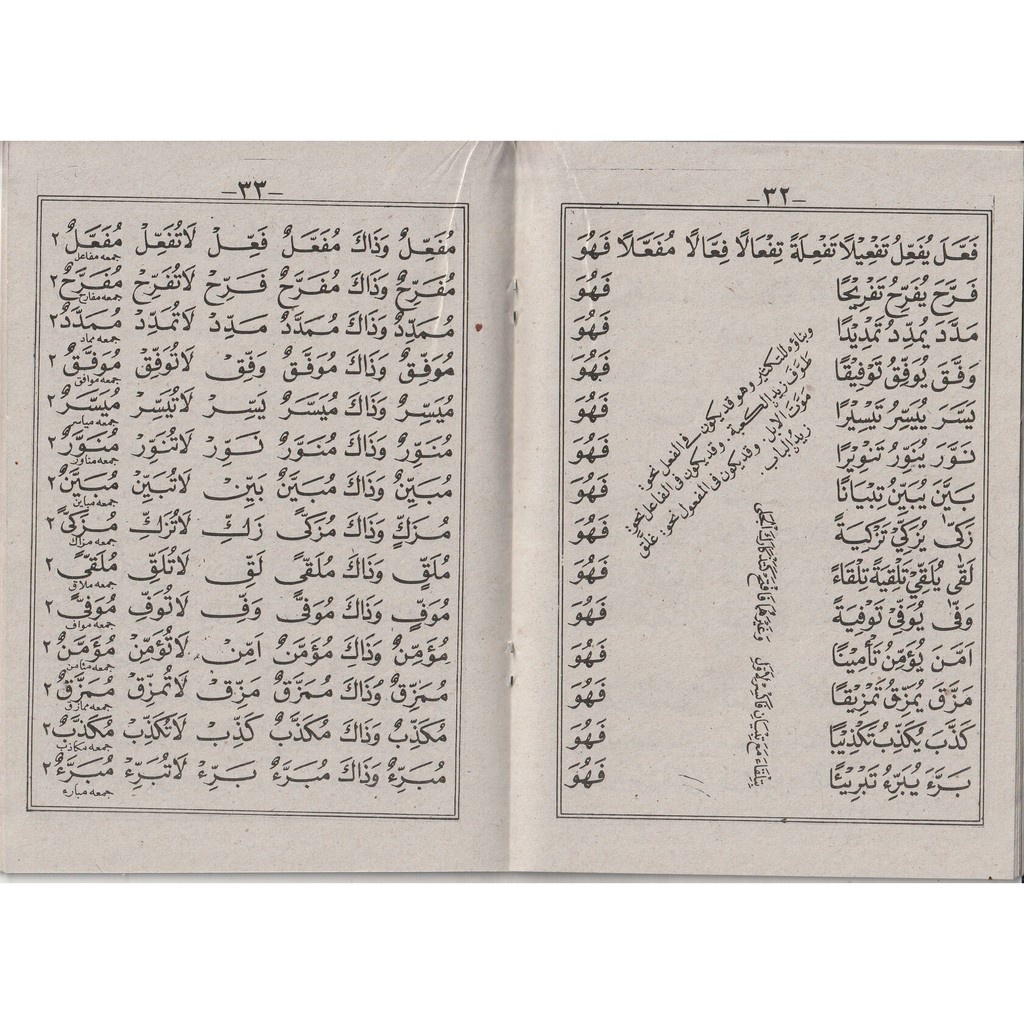 -٣٢-
فَعَّلَ يُفَعِّلُ تَفْعِيْلًا تَفْعِلَةً تِفْعَالًا فِعَّالًا مُفَعَّلًا فَهُوَ
فَرَّحَ يُفَرِّحُ تَفْرِيْحًا فَهُوَ
مَدَّدَ يُمَدِّدُ تَمْدِيْدًا فَهُوَ
وَفَّقَ يُوَفِّقُ تَوْفِيْقًا فَهُوَ
يَسَّرَ يُيَسِّرُ تَيْسِيْرًا فَهُوَ
نَوَّرَ يُنَوِّرُ تَنْوِيْرًا فَهُوَ
بَيَّنَ يُبَيِّنُ تِبْيَانًا فَهُوَ
زَكّٰى يُزَكِّيْ تَزْكِيَةً فَهُوَ
لَقّٰى يُلَقِّيْ تَلْقِيَةً تِلْقَاءً فَهُوَ
وَفّٰى يُوَفِّيْ تَوْفِيَةً فَهُوَ
اَمَّنَ يُؤَمِّنُ تَأْمِيْنًا فَهُوَ
مَزَّقَ يُمَزِّقُ تَمْزِيْقًا فَهُوَ
كَذَّبَ يُكَذِّبُ تَكْذِيْبًا فَهُوَ
بَرَّءَ يُبَرِّءُ تَبْرِيْئًا فَهُوَ
وبناؤه للتكثير وهو قد يكون في الفعل نحو:
طوّف زيد الكعبة. وقد يكون في الفاعل نحو:
موّت الإبل. وقد يكون في المفعول نحو: غلّق
زيدٌ الباب.
-٣٣-
مُفَعِّلٌ وَذَاكَ مُفَعَّلٌ فَعِّلْ لَاتُفَعِّلْ مُفَعَّلٌ ٢
جمعه مفاعل
مُفَرِّحٌ وَذَاكَ مُفَرَّحٌ فَرِّحْ لَاتُفَرِّحْ مُفَرَّحٌ ٢
جمعه مفارح
مُمَدِّدٌ وَذَاكَ مُمَدَّدٌ مَدِّدْ لَاتُمَدِّدْ مُمَدَّدٌ ٢
جمعه مماد
مُوَفِّقٌ وَذَاكَ مُوَفَّقٌ وَفِّقْ لَاتُوَفِّقْ مُوَفَّقٌ ٢
جمعه موافق
مُيَسِّرٌ وَذَاكَ مُيَسَّرٌ يَسِّرْ لَاتُيَسِّرْ مُيَسَّرٌ ٢
جمعه مياسر
مُنَوِّرٌ وَذَاكَ مُنَوَّرٌ نَوِّرْ لَاتُنَوِّرْ مُنَوَّرٌ ٢
جمعه مناور
مُبَيِّنٌ وَذَاكَ مُبَيَّنٌ بَيِّنْ لَاتُبَيِّنْ مُبَيَّنٌ ٢
جمعه مباين
مُزَكٍّ وَذَاكَ مُزَكًّى زَكِّ لَاتُزَكِّ مُزَكًّى ٢
جمعه مزاك
مُلَقٍّ وَذَاكَ مُلَقًّى لَقِّ لَاتُلَقِّ مُلَقًّى ٢
جمعه ملاق
مُوَفٍّ وَذَاكَ مُوَفًّى وَفِّ لَاتُوَفِّ مُوَفًّى ٢
جمعه مواف
مُؤَمِّنٌ وَذَاكَ مُؤَمَّنٌ اَمِّنْ لَاتُؤَمِّنْ مُؤَمَّنٌ ٢
جمعه مئامن
مُمَزِّقٌ وَذَاكَ مُمَزَّقٌ مَزِّقْ لَاتُمَزِّقْ مُمَزَّقٌ ٢
جمعه ممازق
مُكَذِّبٌ وَذَاكَ مُكَذَّبٌ كَذِّبْ لَاتُكَذِّبْ مُكَذَّبٌ ٢
جمعه مكاذب
مُبَرِّءٌ وَذَاكَ مُبَرَّءٌ بَرِّءْ لَاتُبَرِّءْ مُبَرَّءٌ ٢
جمعه مبارء